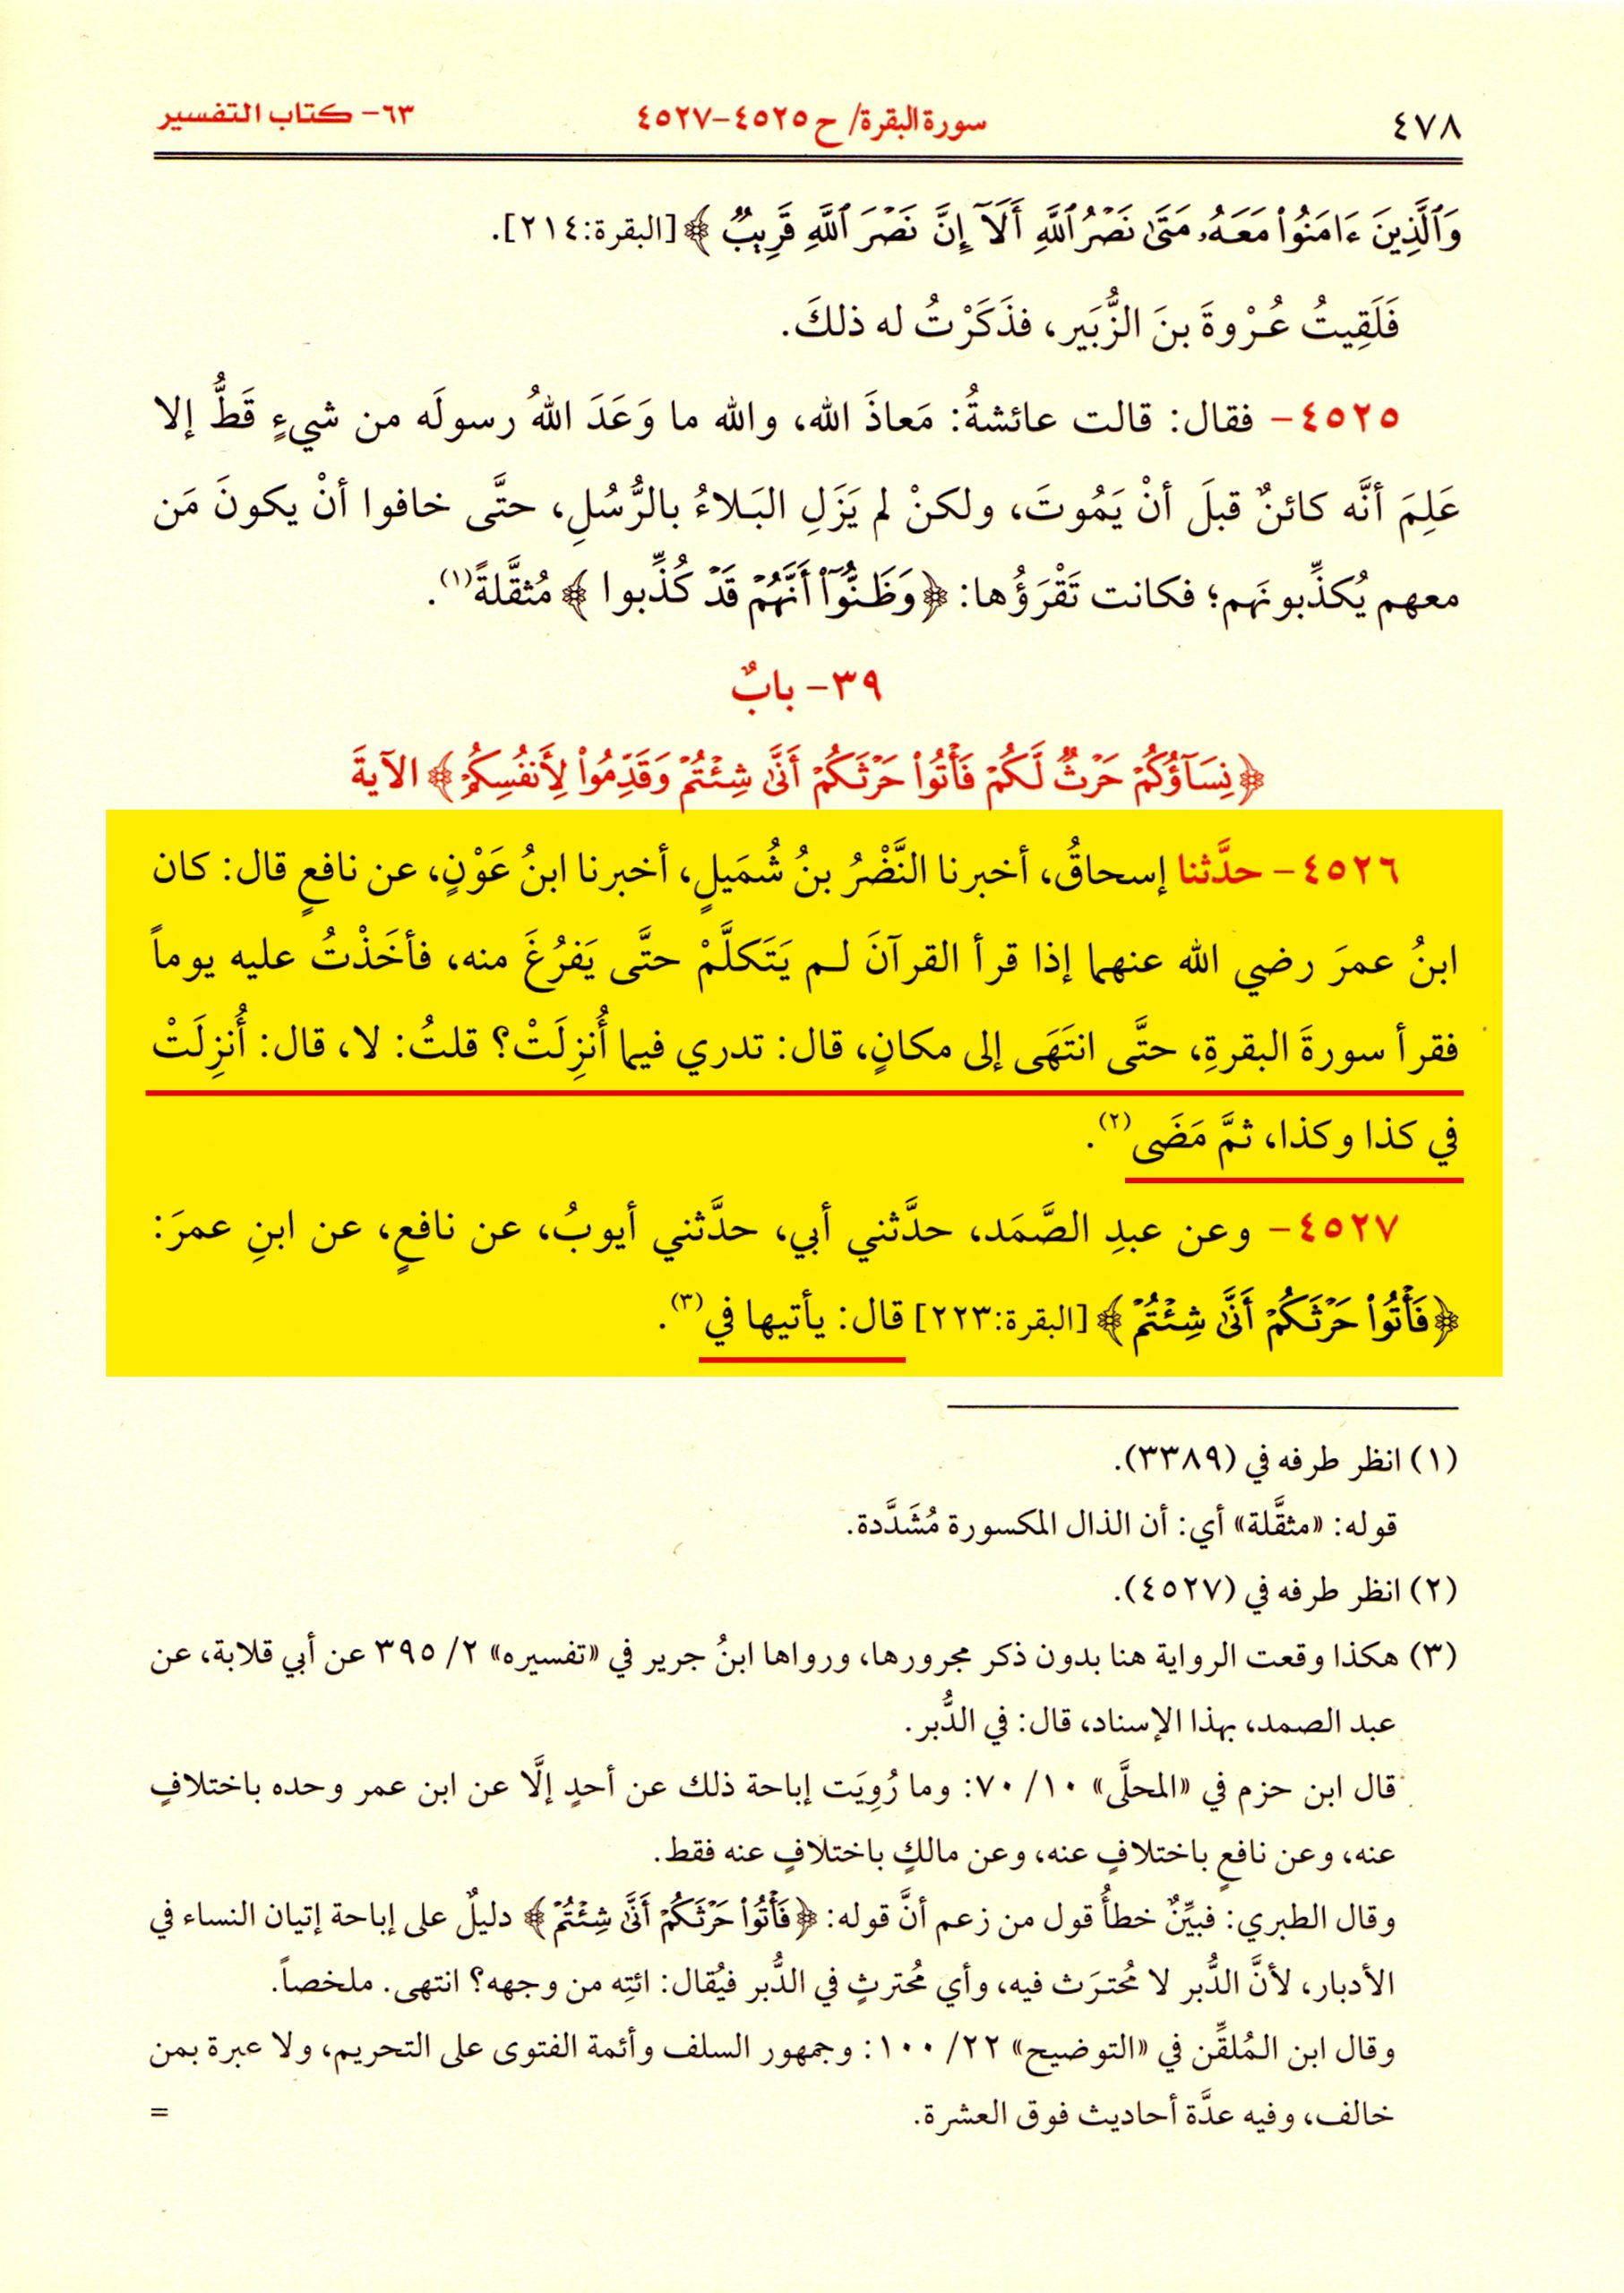 ٤٧٨ سورة البقرة/ ح ٤٥٢٥-٤٥٢٧ ٦٣- كتاب التفسير
وَٱلَّذِينَ ءَامَنُوا۟ مَعَهُۥ مَتَىٰ نَصْرُ ٱللَّهِ أَلَآ إِنَّ نَصْرَ ٱللَّهِ قَرِيبٌ ﴾ [البقرة:٢١٤].
فَلَقِيتُ عُرْوةَ بنَ الزُّبَير، فذَكَرْتُ له ذلكَ.
٤٥٢٥- فقال: قالت عائشةُ: مَعاذَ الله، والله ما وَعَدَ اللهُ رسولَه من شيءٍ قَطُّ إلا
عَلِمَ أنَّه كائنٌ قبلَ أنْ يَمُوتَ، ولكنْ لم يَزَلِ البَلاءُ بالرُّسُلِ، حتَّى خافوا أنْ يكونَ مَن
معهم يُكذِّبونَهم؛ فكانت تَقْرَؤُها: ﴿وَظَنُّوٓا۟ أَنَّهُمْ قَدْ كُذِّبوا ﴾ مُثقَّلةً(١).
٣٩- بابٌ
﴿نِسَآؤُكُمْ حَرْثٌ لَّكُمْ فَأْتُوا۟ حَرْثَكُمْ أَنَّىٰ شِئْتُمْ وَقَدِّمُوا۟ لِأَنفُسِكُمْ﴾ الآيةَ
٤٥٢٦- حدَّثنا إسحاقُ، أخبرنا النَّضْرُ بنُ شُمَيلٍ، أخبرنا ابنُ عَوْنٍ، عن نافعٍ قال: كان
ابنُ عمرَ رضي الله عنهما إذا قرأ القرآنَ لـم يَتَكلَّمْ حتَّى يَفرُغَ منه، فأخَذْتُ عليه يوماً
فقرأ سورةَ البقرةِ، حتَّى انتَهَى إلى مكانٍ، قال: تدري فيما أُنزِلَتْ؟ قلتُ: لا، قال: أُنزِلَتْ
في كذا وكذا، ثمَّ مَضَى(٢).
٤٥٢٧- وعن عبدِ الصَّمَد، حدَّثني أبي، حدَّثني أيوبُ، عن نافعٍ، عن ابنِ عمرَ:
﴿فَأْتُوا۟ حَرْثَكُمْ أَنَّىٰ شِئْتُمْ﴾ [البقرة:٢٢٣] قال: يأتيها في(٣).
(١) انظر طرفه في (٣٣٨٩).
قوله: «مثقَّلة» أي: أن الذال المكسورة مُشَدَّدة.
(٢) انظر طرفه في (٤٥٢٧).
(٣) هكذا وقعت الرواية هنا بدون ذكر مجرورها، ورواها ابنُ جرير في «تفسيره» ٢/ ٣٩٥ عن أبي قلابة، عن
عبد الصمد، بهذا الإسناد، قال: في الدُّبر.
قال ابن حزم في «المحلَّى» ١٠/ ٧٠: وما رُوِيَت إباحة ذلك عن أحدٍ إلَّا عن ابن عمر وحده باختلافٍ
عنه، وعن نافعٍ باختلافٍ عنه، وعن مالكٍ باختلافٍ عنه فقط.
وقال الطبري: فبيِّنٌ خطأُ قول من زعم أنَّ قوله: ﴿فَأْتُوا۟ حَرْثَكُمْ أَنَّىٰ شِئْتُمْ﴾ دليلٌ على إباحة إتيان النساء في
الأدبار، لأنَّ الدُّبر لا مُحترَث فيه، وأي مُحترثٍ في الدُّبر فيُقال: ائتِه من وجهه؟ انتهى. ملخصاً.
وقال ابن المُلقِّن في «التوضيح» ٢٢/ ١٠٠: وجمهور السلف وأئمة الفتوى على التحريم، ولا عبرة بمن
خالف، وفيه عدَّة أحاديث فوق العشرة. =